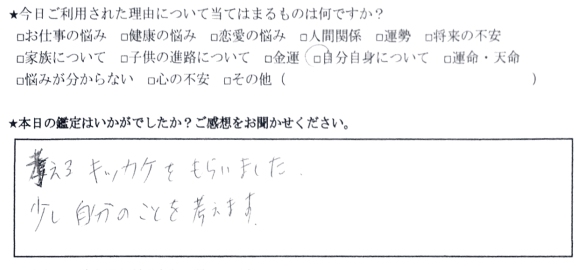 ★今日ご利用された理由について当てはまるものは何ですか？
□お仕事の悩み □健康の悩み □恋愛の悩み □人間関係 □運勢 □将来の不安
□家族について □子供の進路について □金運 □自分自身について □運命・天命
□悩みが分からない □心の不安 □その他（　　　　　　　　　　　　　　　　　　）
★本日の鑑定はいかがでしたか？ご感想をお聞かせください。
考える キッカケを もらいました.
少し 自分のことを 考えます.